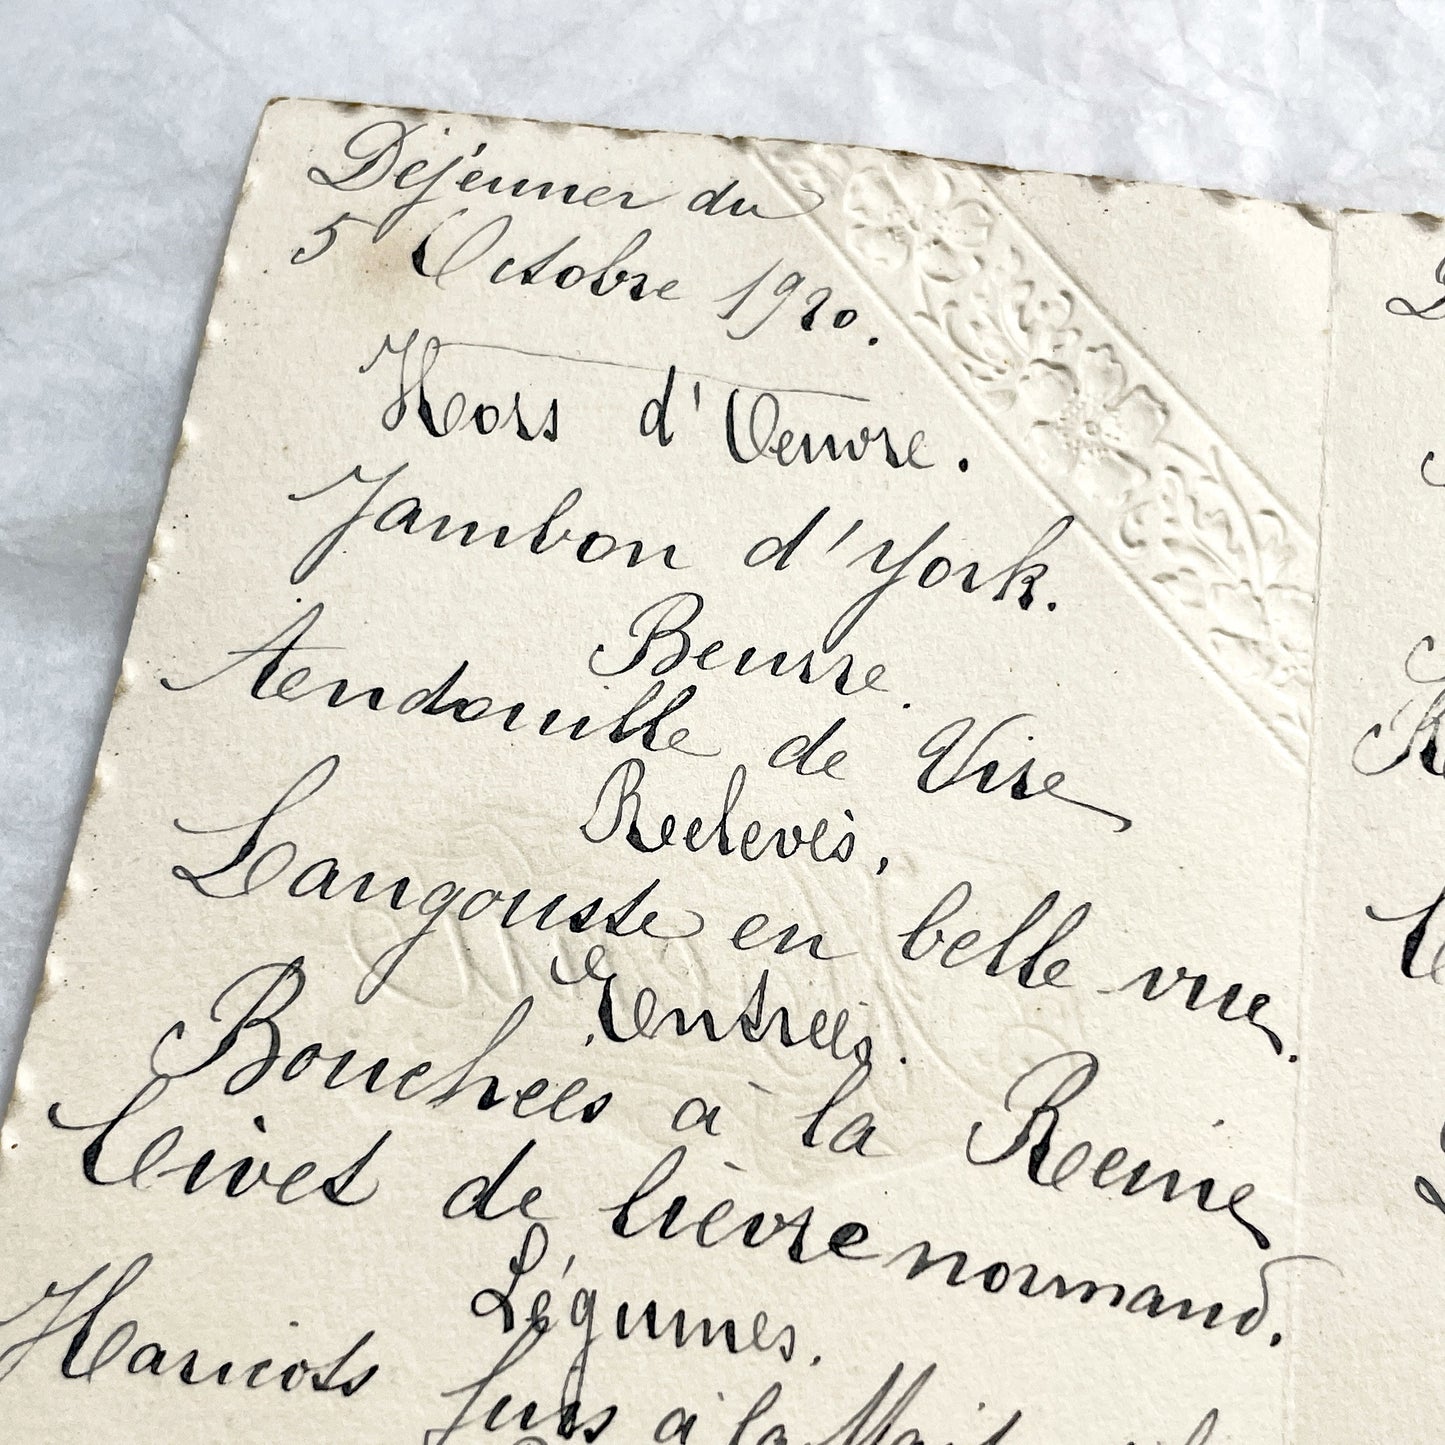 Déjeuner du
5 Octobre 1920.
Hors d'Oeuvre.
Jambon d'York.
Beurre.
Andouille de Vire
Relevés.
Langouste en belle vue.
Entrées.
Bouchées à la Reine
Civet de lièvre normand.
Légumes.
Haricots fins à la